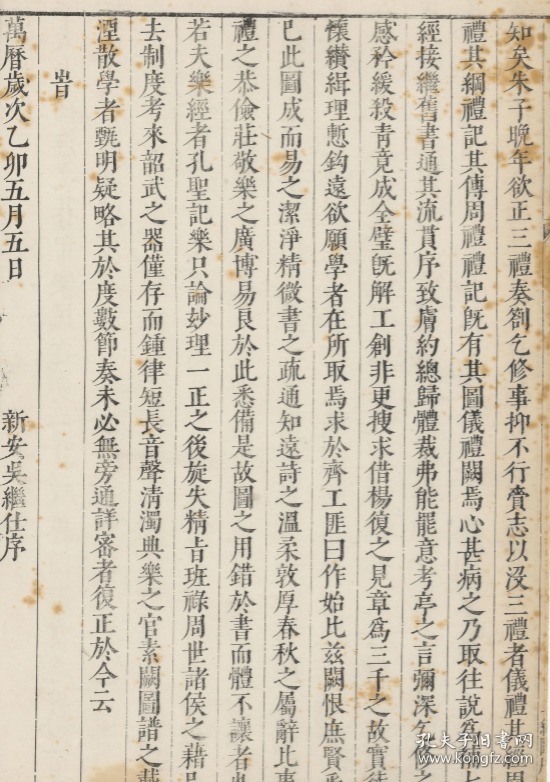 知矣朱子晚年欲正三禮奏劄乞修事抑不行賫志以沒三禮者儀禮其經周
禮其綱禮記其傳周禮禮記旣有其圖儀禮闕焉心甚病之乃取往說
經接繼舊書通其流貫序致膚約總歸體裁弗能罷意考亭之言彌深
感矜緩殺青竟成全璧旣解工創非更搜求借楊復之見章爲三千之故實
懷纉緝理慙鈎遠欲願學者在所取焉求於齊工匪曰作始比玆闕恨庶賢
巳此圖成而易之潔淨精微書之疏通知遠詩之溫柔敦厚春秋之屬辭比事
禮之恭儉莊敬樂之廣博易良於此悉備是故圖之用錯於書而體不讓者
若夫樂經者孔聖記樂只論妙理一正之後旋失精㫖班祿周世諸侯之藉
去制度考來韶武之器僅存而鍾律短長音聲淸濁典樂之官素闕圖譜之
湮散學者甄明疑略其於度數節奏未必無旁通詳審者復正於今云
旹
萬曆歲次乙卯五月五日 新安吳繼仕序
孔夫子旧书网
kongfz.com